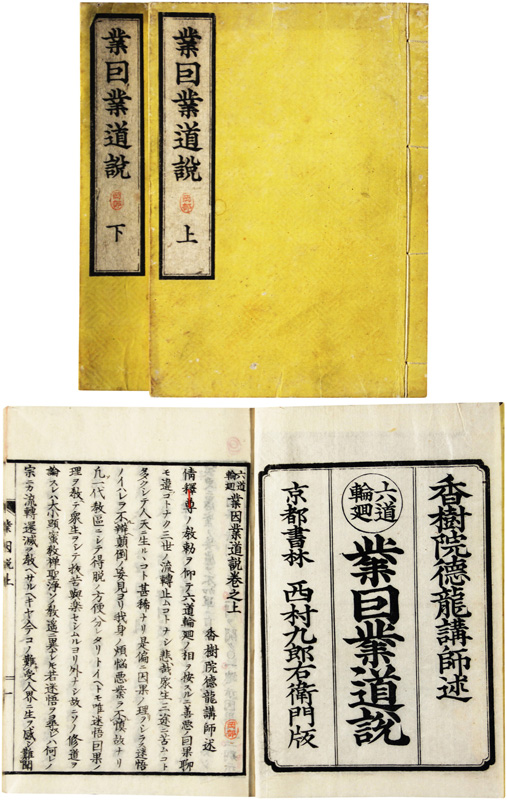 業囙業道說 上
業囙業道說 下
香樹院德龍講師述
六道
輪廻
業囙業道說
京都書林 西村九郎右衛門版
六道輪廻 業因業道說卷之上
香樹院德龍講師述
倩釋尊ノ教勅ヲ仰テ六道輪廻ノ相ヲ按スルニ善悪ノ因果聊
モ違コトナク三世ノ流轉止ムコトナシ悲哉衆生三途ニ苦ムコト
多クシテ人天ニ生ルヽコト甚稀ナリ是偏ニ因果ノ理クラク迷悟
ノイハレヲ不辨顛倒ノ妄見ヨリ我身ノ煩惱悪業ヲ不慎故ナリ
凡一代教區ニシテ得脱ノ方便分レタリトイヘトモ唯迷悟因果ノ
理ヲ教テ衆生ヲシテ抜苦與楽セシムルヨリ外ナシ故ニソノ修道ヲ
論スレハ大小顕蜜教禅聖浄ノ教遙ニ異レトモ若迷悟ヲ棄レハ何レノ
宗ニカ流轉還滅ヲ教ヘサルヘキヤ今コノ難受人界ニ生ヲ感シ難聞
業因説上